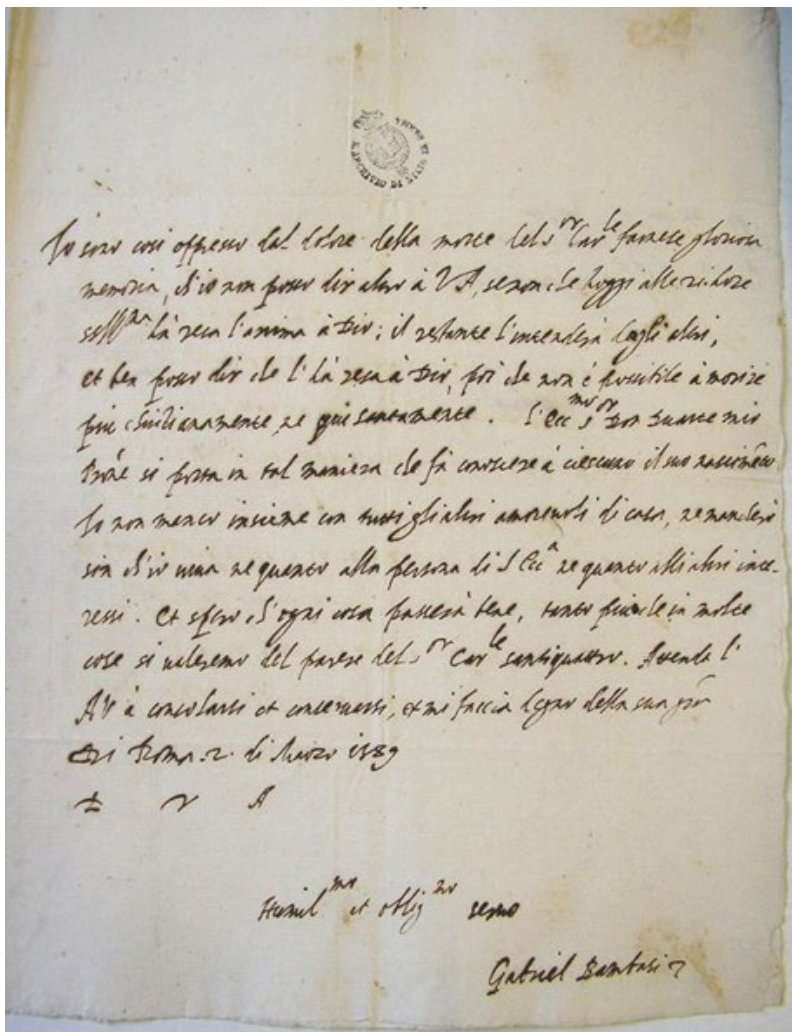 Io sono cosi oppresso dal dolore della morte del s.or Car.le farnese gloriosa
memoria, ch'io non posso dir altro à V A, se non che hoggi alle
hà resa l'anima à Dio; il restante l'intenderà dagli altri,
et ben posso dir che l'hà resa à Dio, poi che non è possibile à morire
piu christianamente, ne piu santamente. l'Ecc.mo s.or Don Duarte mio
Prōne si porta in tal maniera che fà conoscere à ciascuno il suo nascimēto
Io non manco insieme con tutti gli altri amorevoli di casa, ne mancherò
sin ch'io viva ne quanto alla persona di S Ecc.a ne quanto alli altri inte-
ressi. Et spero ch'ogni cosa passerà bene, tanto piu che in molte
cose si valeremo del parere del s.or Car.le santiquattro. Attenda l'
AV à consolarsi et conservarsi, et mi faccia degno della sua grā
Di Roma .2. di Marzo 1589
D V A
Humil.mo et oblig.mo servo
Gabriel Bambasi